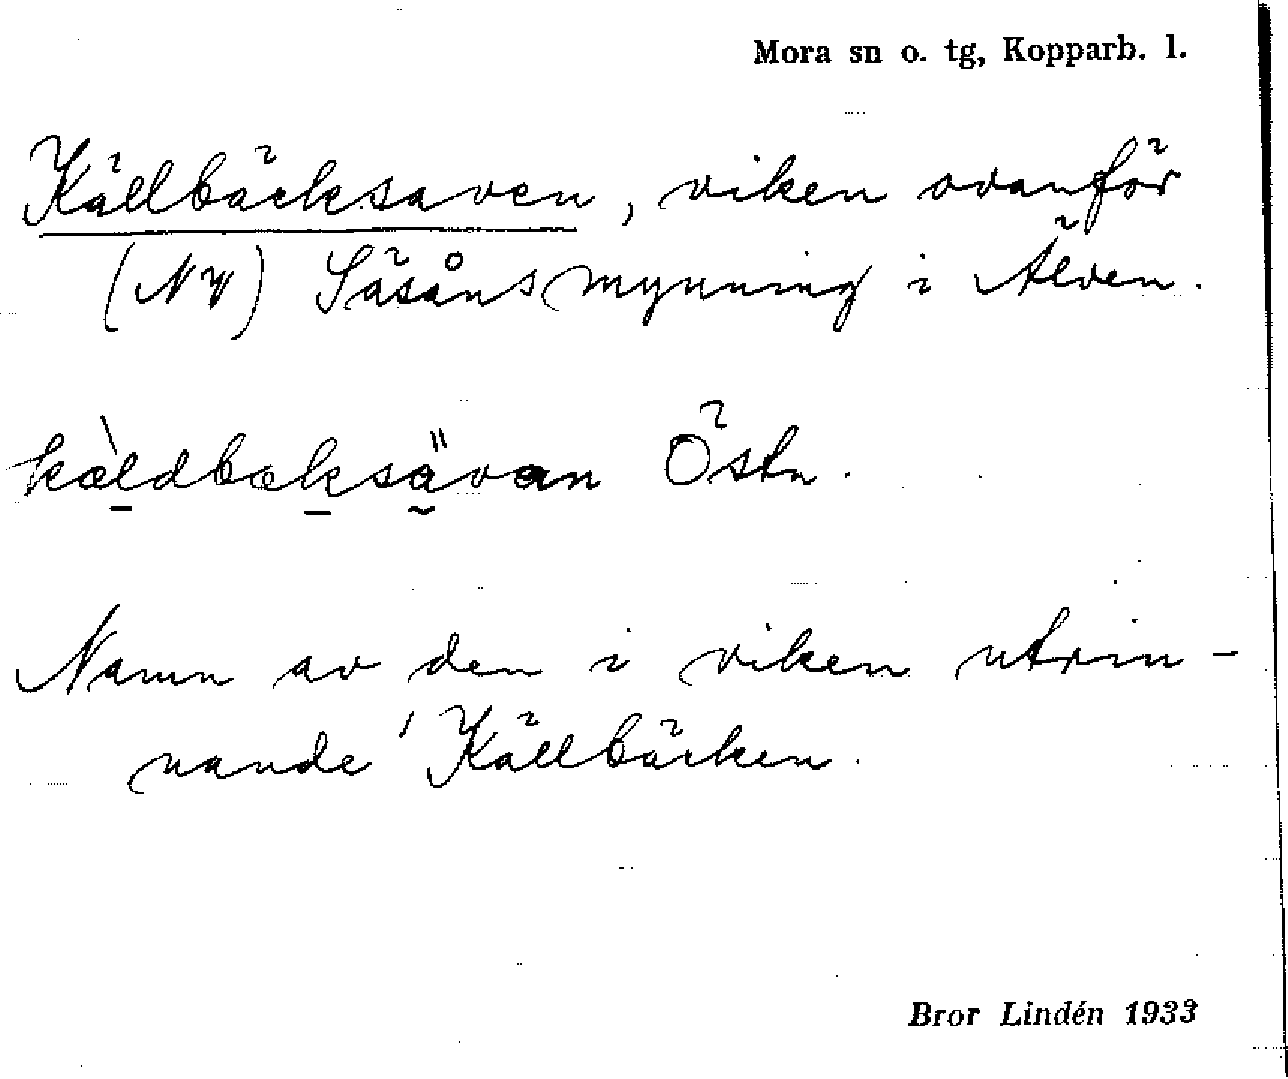 Mora sn o. tg, Kopparb. l.
Källbäcksaven, viken ovanför
(NV) Säsåns mynning i Älven.
kældbæksävan Östn.
Namn av den i viken utrin-
nande Källbäcken.
Bror Lindén 1933